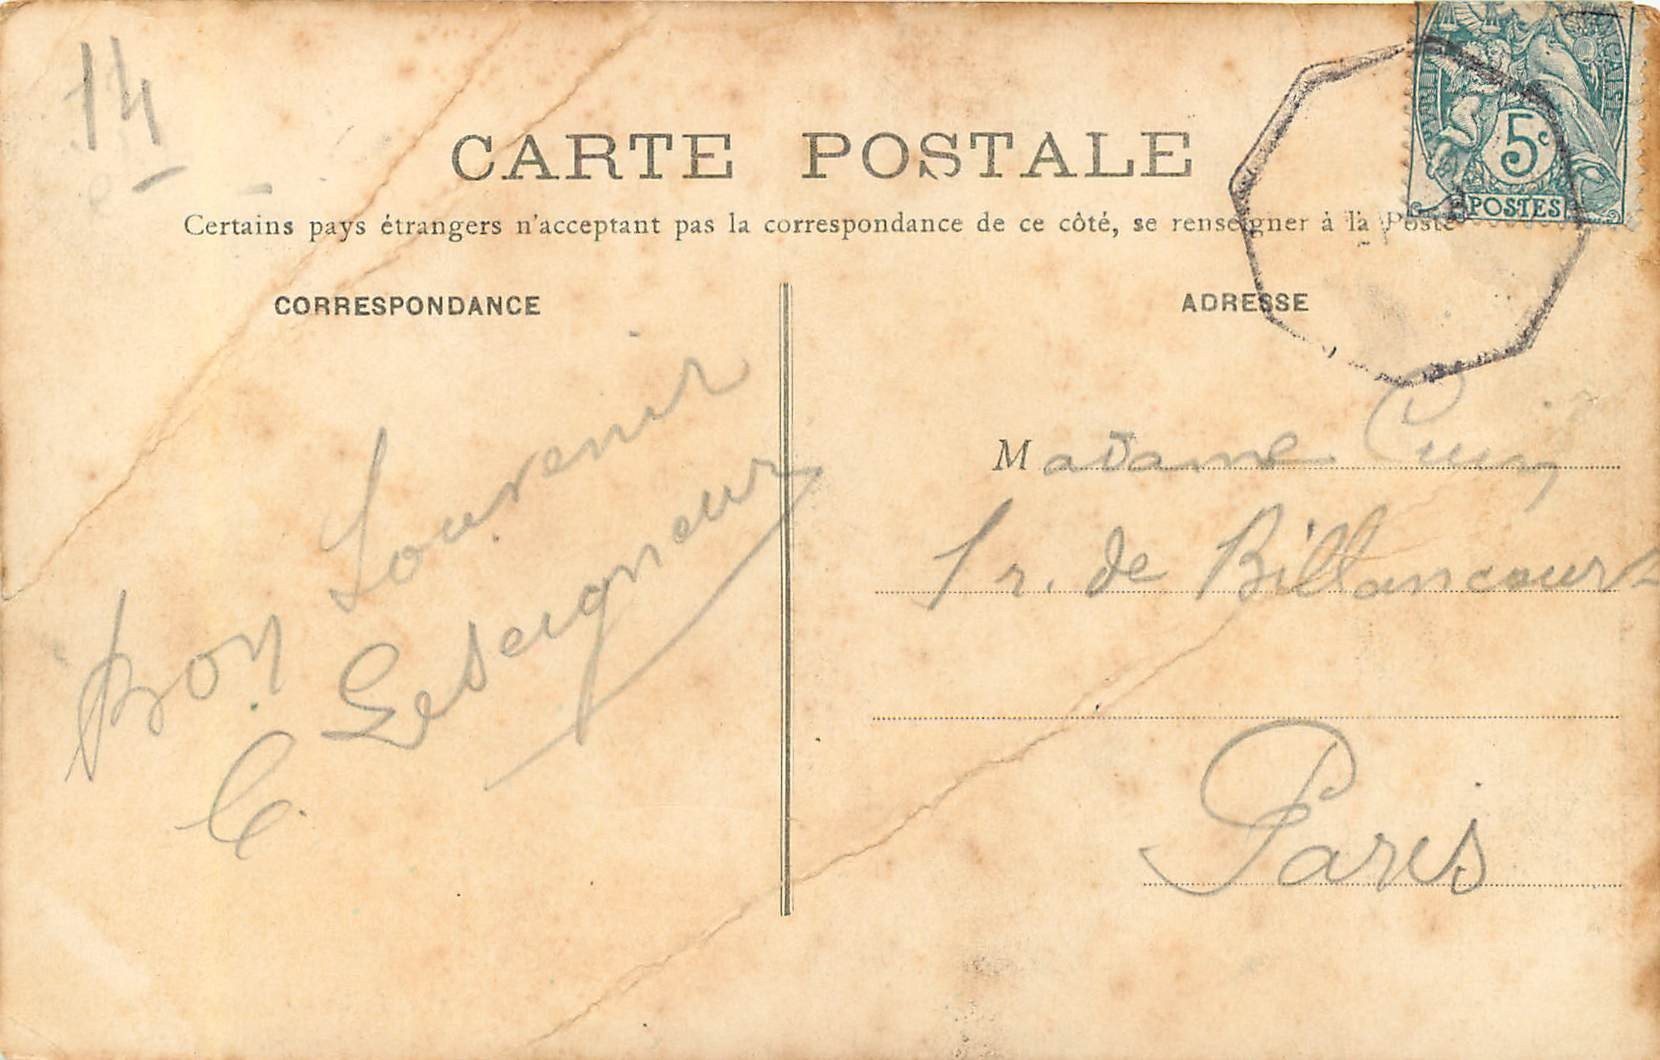 14
CARTE POSTALE
Certains pays étrangers n'acceptant pas la correspondance de ce côté, se renseigner à la Poste
5c
POSTES
CORRESPONDANCE
Bon Souvenir
C Leseigneur
ADRESSE
Madame
1 r. de Billancourt
Paris